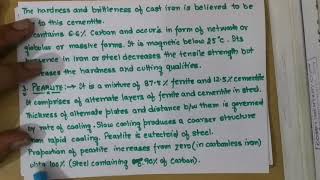 The hardness and brittleness of cast iron is believed to be
to this cementite.
contains 6.6% Carbon and occurs in form of network or
globular or massive forms. It is magnetic below 25°C. Its
in iron or steel decreases the tensile strength but
the hardness and cutting qualities.
3. PEARLITE :→ It is a mixture of 87.5% ferrite and 12.5% cementite
It comprises of alternate layers of ferrite and cementite in steel.
Thickness of alternate plates and distance b/w them is governed
by rate of cooling. Slow cooling produces a coarser structure
than rapid cooling. Pearlite is eutectoid of steel.
Proportion of pearlite increases from zero (in carbonless iron)
upto 100% (steel containing 0.90% of carbon).